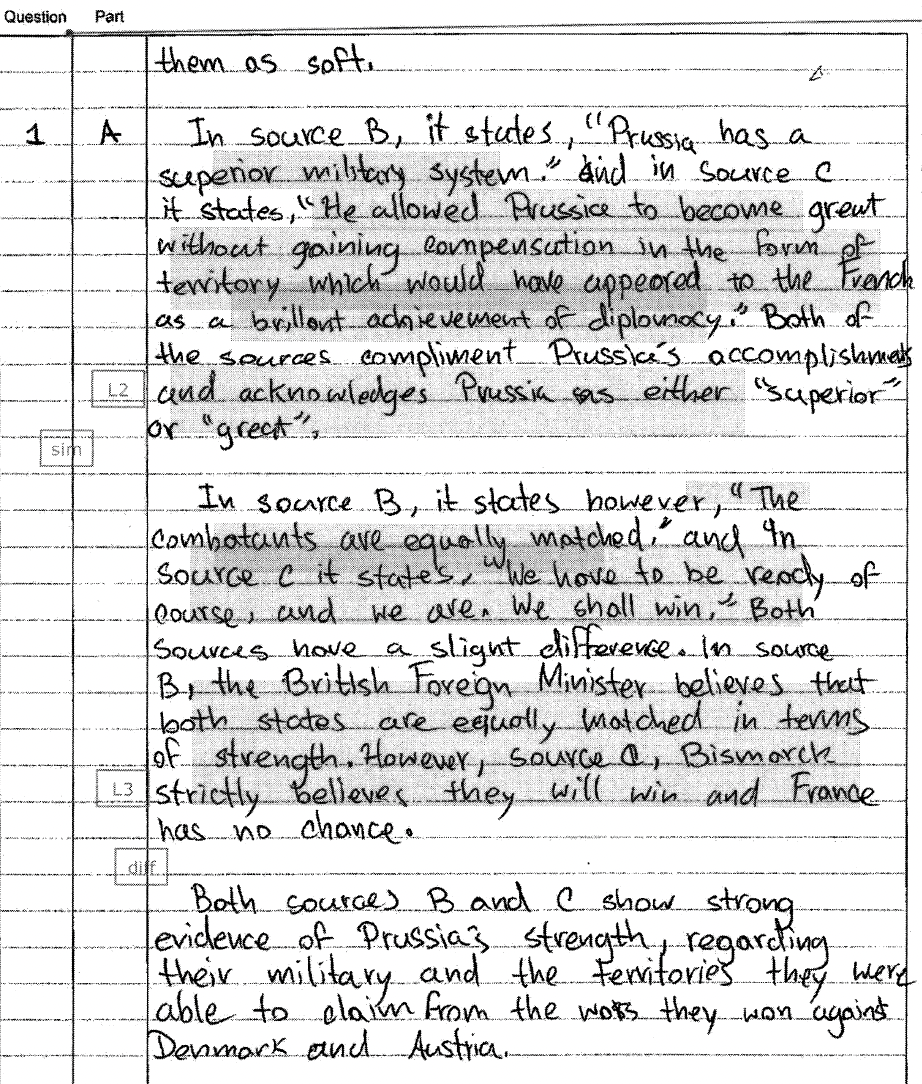 Question Part
them as soft.
1 A In source B, it states, "Prussia has a
superior military system." And in source C
it states, "He allowed Prussia to become great
without gaining compensation in the form of
territory which would have appeared to the French
as a brillant achievement of diplomacy." Both of
the sources compliment Prussia's accomplishments
L2 and acknowledges Prussia as either "superior"
or "great".
sim
In source B, it states however, "The
combatants are equally matched." and in
source C it states, "We have to be ready of
course, and we are. We shall win." Both
sources have a slight difference. In source
B, the British Foreign Minister believes that
both states are equally matched in terms
of strength. However, source C, Bismarck
L3 strictly believes they will win and France
has no chance.
diff
Both sources B and C show strong
evidence of Prussia's strength, regarding
their military and the territories they were
able to claim from the wars they won against
Denmark and Austria.